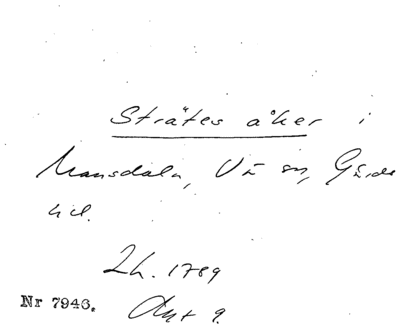 Stråtes åker i
Mansdaln, Vä sn, Gärds
hd.
Lh. 1789
Akt 9.
Nr 7943.